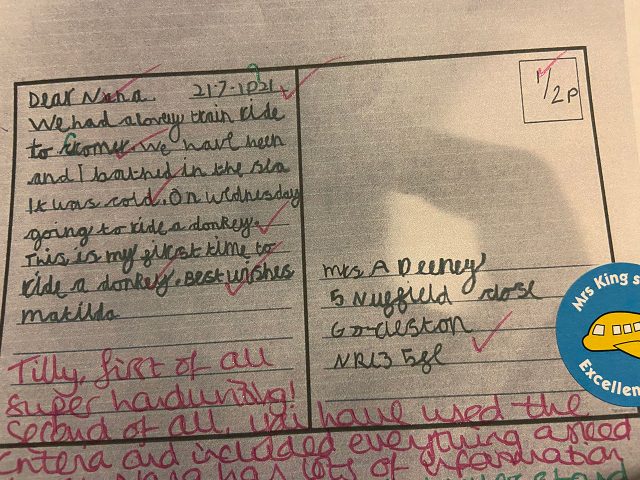 Dear Nana. 21-7-1921
We had a lovey train ride
to Cromer. We have been
and I bathed in the sea
It was cold. On wednesday
going to ride a donkey.
This is my first time to
ride a donkey. Best wishes
Matilda
1/2P
Mrs A Deeney
5 Nuffield close
Gorleston
NR13 5gl
Mrs King s
Excellen
Tilly, first of all
super handwriting!
Second of all, you have used the
criteria and included everything asked
Nana has lots of information